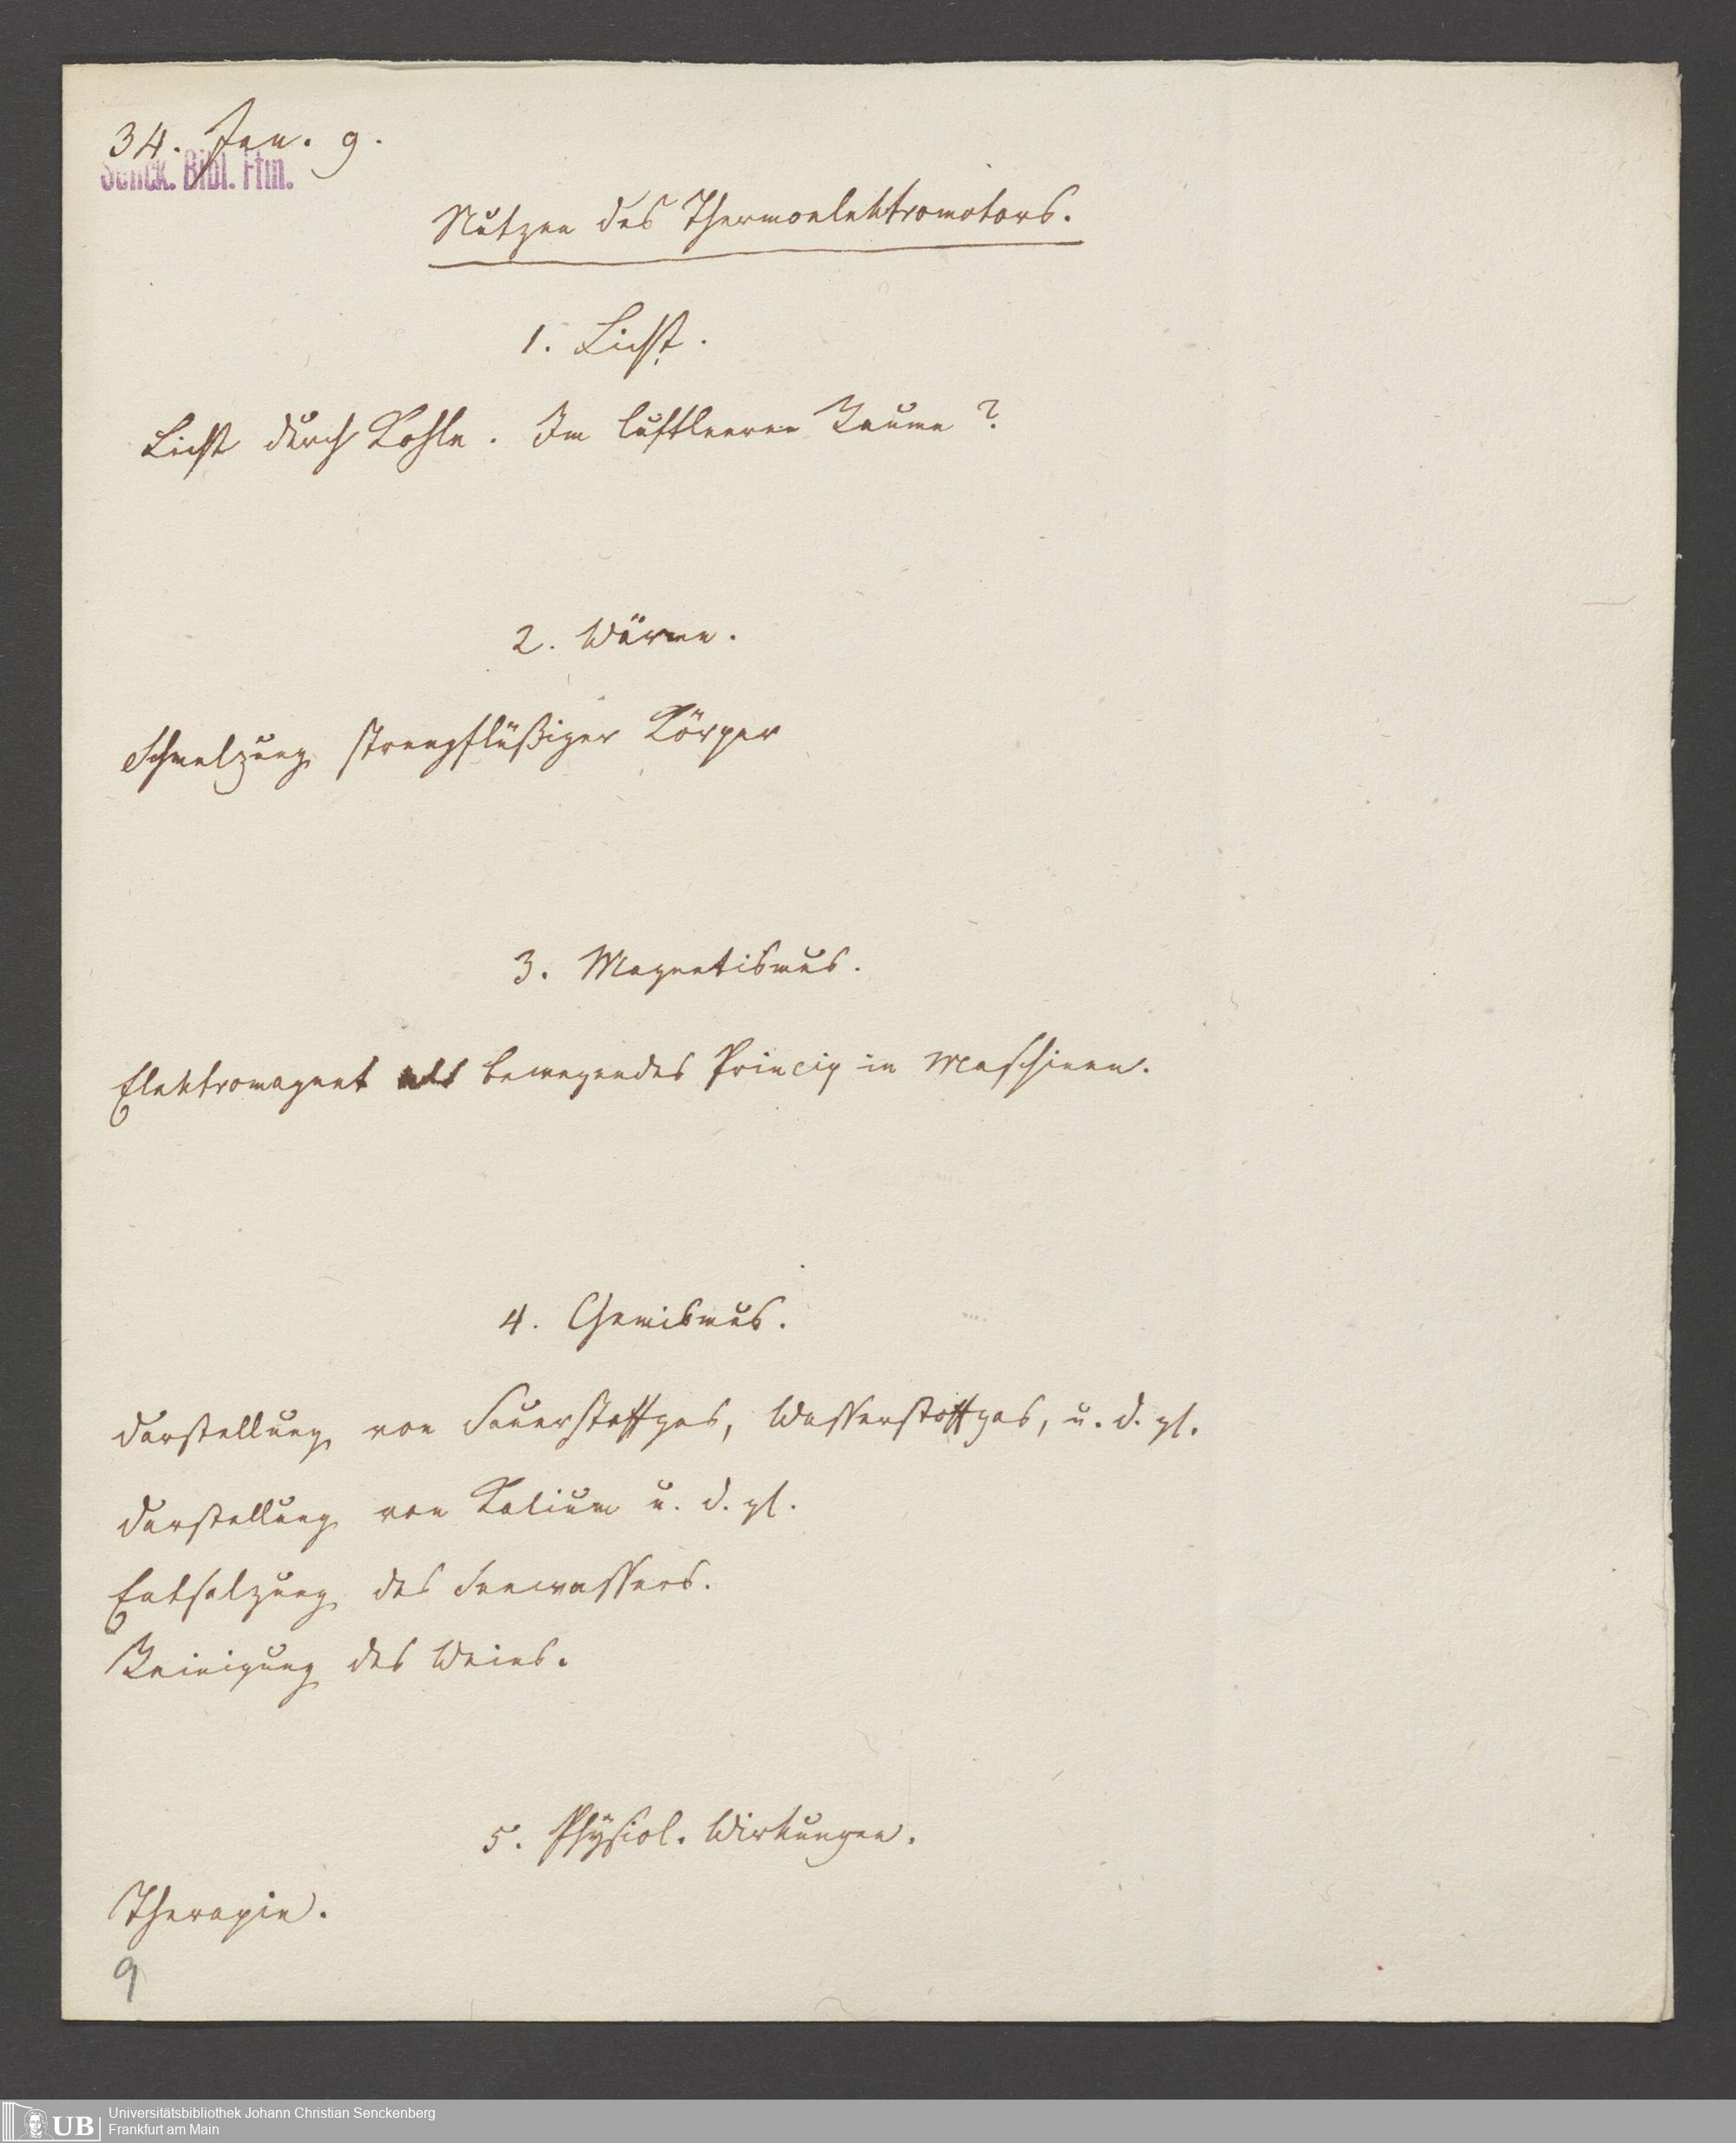 34. Jan. 9.
Senck. Bibl. Ffm.
Nutzen des Thermoelektromotors.
1. Licht.
Licht durch Kohle. Im luftleeren Raume?
2. Wärme.
Schmelzung strengflüßiger Körper
3. Magnetismus.
Elektromagnet als bewegendes Princip in Maschinen.
4. Chemismus.
Darstellung von Sauerstoffgas, Wasserstoffgas, u. d. gl.
Darstellung von Kalium u. d. gl.
Entsalzung des Seewassers.
Reinigung des Weins.
5. Physiol. Wirkungen.
Therapie.
9
UB
Universitätsbibliothek Johann Christian Senckenberg
Frankfurt am Main